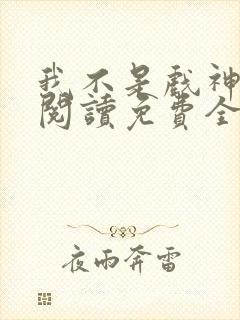 我不是戲神
閱讀免費全
夜雨奔雷